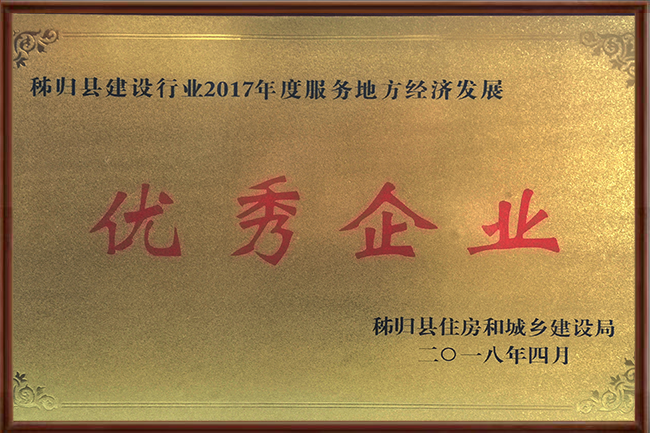 秭归县建设行业2017年度服务地方经济发展
优秀企业
秭归县住房和城乡建设局
二〇一八年四月